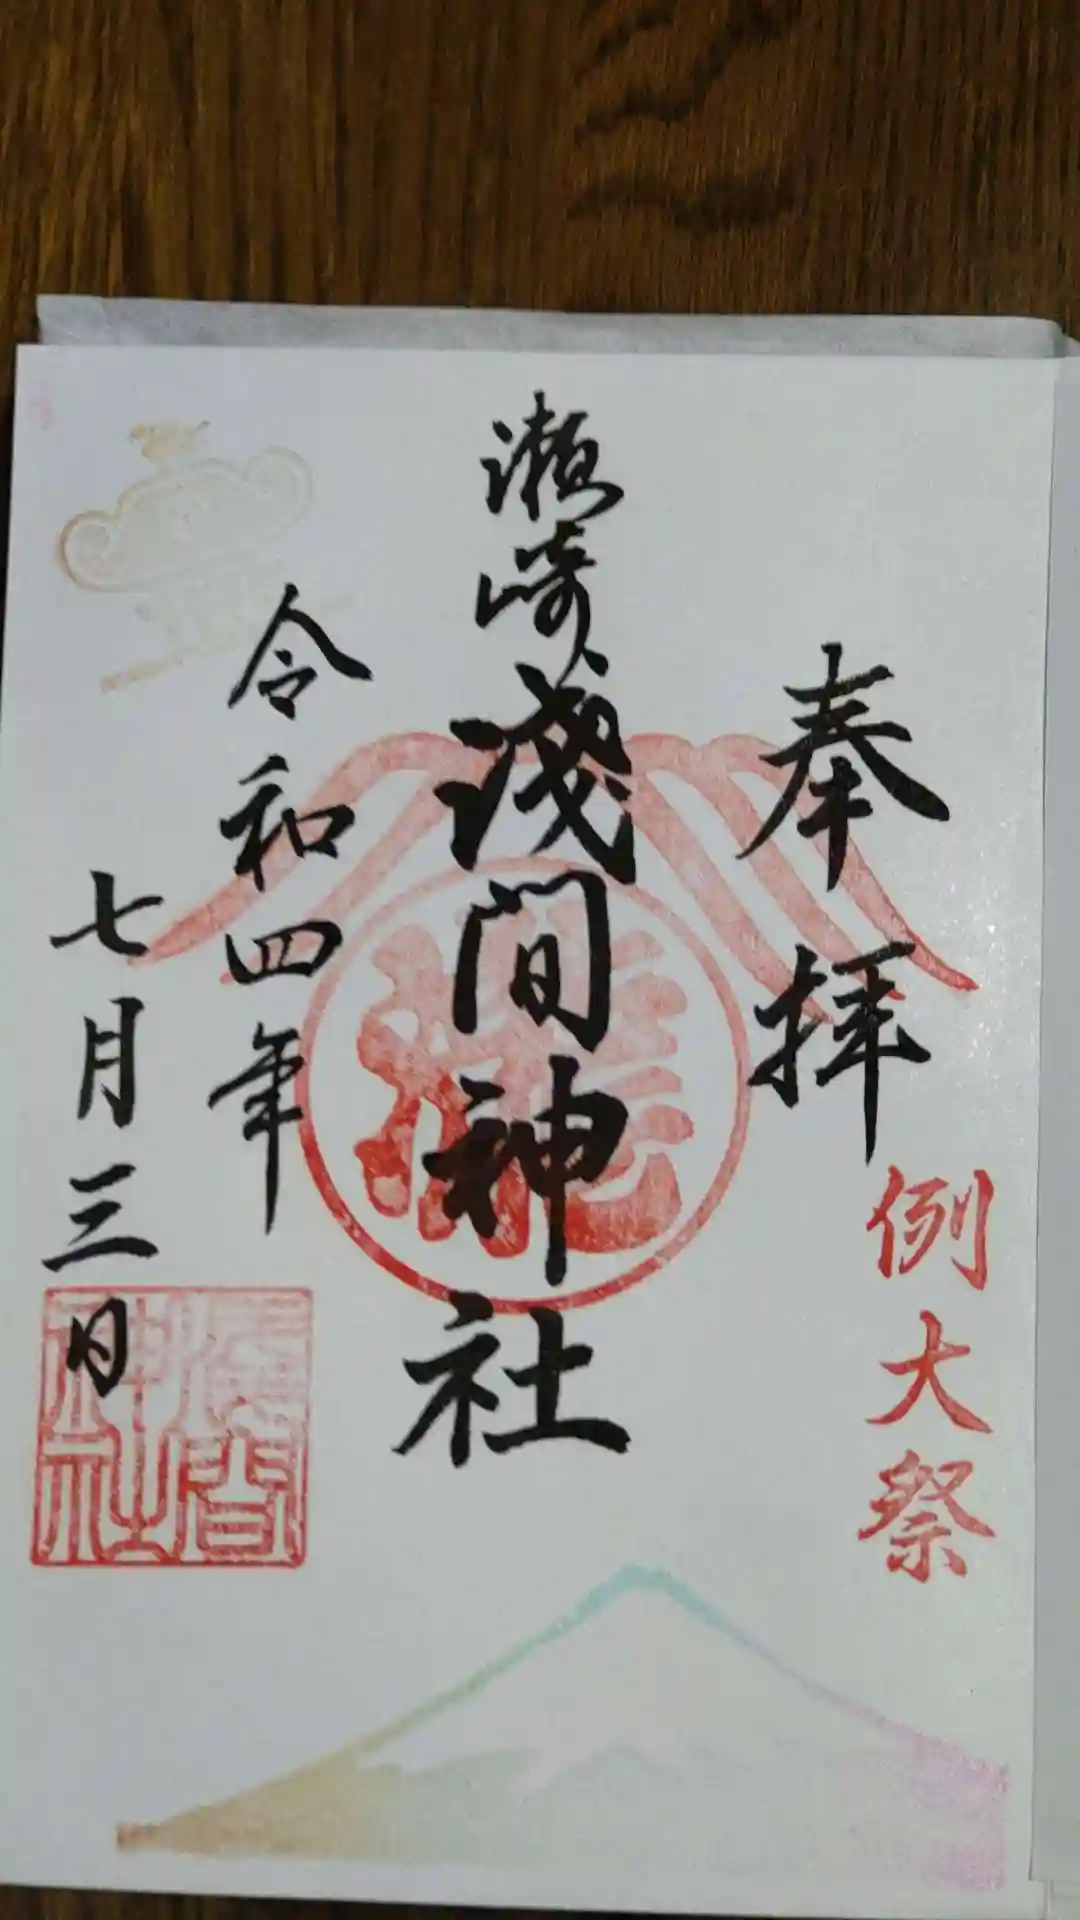 奉拝
例大祭
瀬崎
淺間神社
令和四年
七月三日
淺間
神社